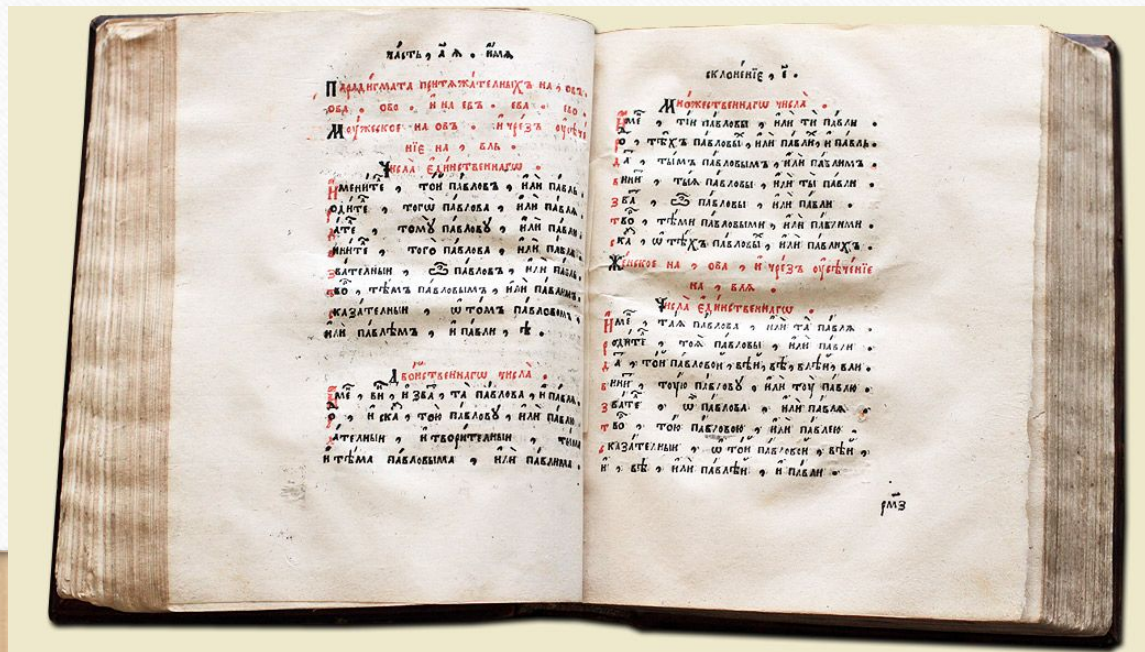 часть , а҃ я . и҆́мѧ
Парадїгмата притѧжателныхъ на , овъ .
ова . ово . и҆ на евъ . ева . ево .
Мꙋжеское на овъ . и҆ чрезъ ᲂу҆сѣче
нїе на , вль .
Числа̀ є҆ди́нственнагѡ .
И҆мени́те , то́й па́вловъ , и҆лѝ па́вль .
роди́те , тогѡ̀ па́влова , и҆лѝ па́влѧ
да́те , томꙋ̀ па́вловꙋ , и҆лѝ
вини́те , того̀ па́влова , и҆лѝ па́влѧ
зва́телный , ѽ па́вловъ , и҆лѝ па́вль
тво , тѣ́мъ па́вловымъ , и҆лѝ па́влимъ
сказа́телный , ѡ҆ то́мъ па́вловомъ ,
и҆лѝ па́влѣмъ , и҆ па́вли , ѣ .
Дво́йственнагѡ числа̀ .
И҆ме , ви , и҆ зва , та̀ па́влова , и҆ па́влѧ
ро , и҆ ска , то́ю па́вловꙋ , и҆лѝ па́влю
да́телный , и҆ твори́телный , ты́ма
и҆ тѣ́ма па́вловыма , и҆лѝ па́влима .
склоне́нїе , є҃ .
Мно́жественнагѡ числа̀ .
И҆ме , ті́и па́вловы , и҆лѝ ти па́вли .
ро , тѣ́хъ па́вловы , и҆лѝ па́вли , и҆ па́вль .
да , ты́мъ па́вловымъ , и҆лѝ па́влимъ .
вини , ты́ѧ па́вловы , и҆лѝ ты па́вли .
зва , ѽ па́вловы , и҆лѝ па́вли .
тво , тѣ́ми па́вловыми , и҆лѝ па́влими
ска , ѡ҆ тѣ́хъ па́вловы , и҆лѝ па́влихъ .
Же́нское на , ова , и҆ чрезъ ᲂу҆сѣче́нїе
на , влѧ .
Числа̀ є҆ди́нственнагѡ .
И҆ме , та́ѧ па́влова , и҆лѝ та̀ па́влѧ .
роди́те , тоѧ̀ па́вловы , и҆лѝ па́вли .
да , то́й па́вловой , вѣй , вѣ , влѣй , вли .
вини , тꙋ́ю па́вловꙋ , и҆лѝ тꙋ па́влю .
зва́те , ѽ па́влова . и҆лѝ па́влѧ .
тво , то́ю па́вловою , и҆лѝ па́влею .
сказа́телный , ѡ҆ то́й па́вловой , вѣй ,
и҆ , вѣ , и҆лѝ па́влѣй , и҆ па́вли .
рм҃з